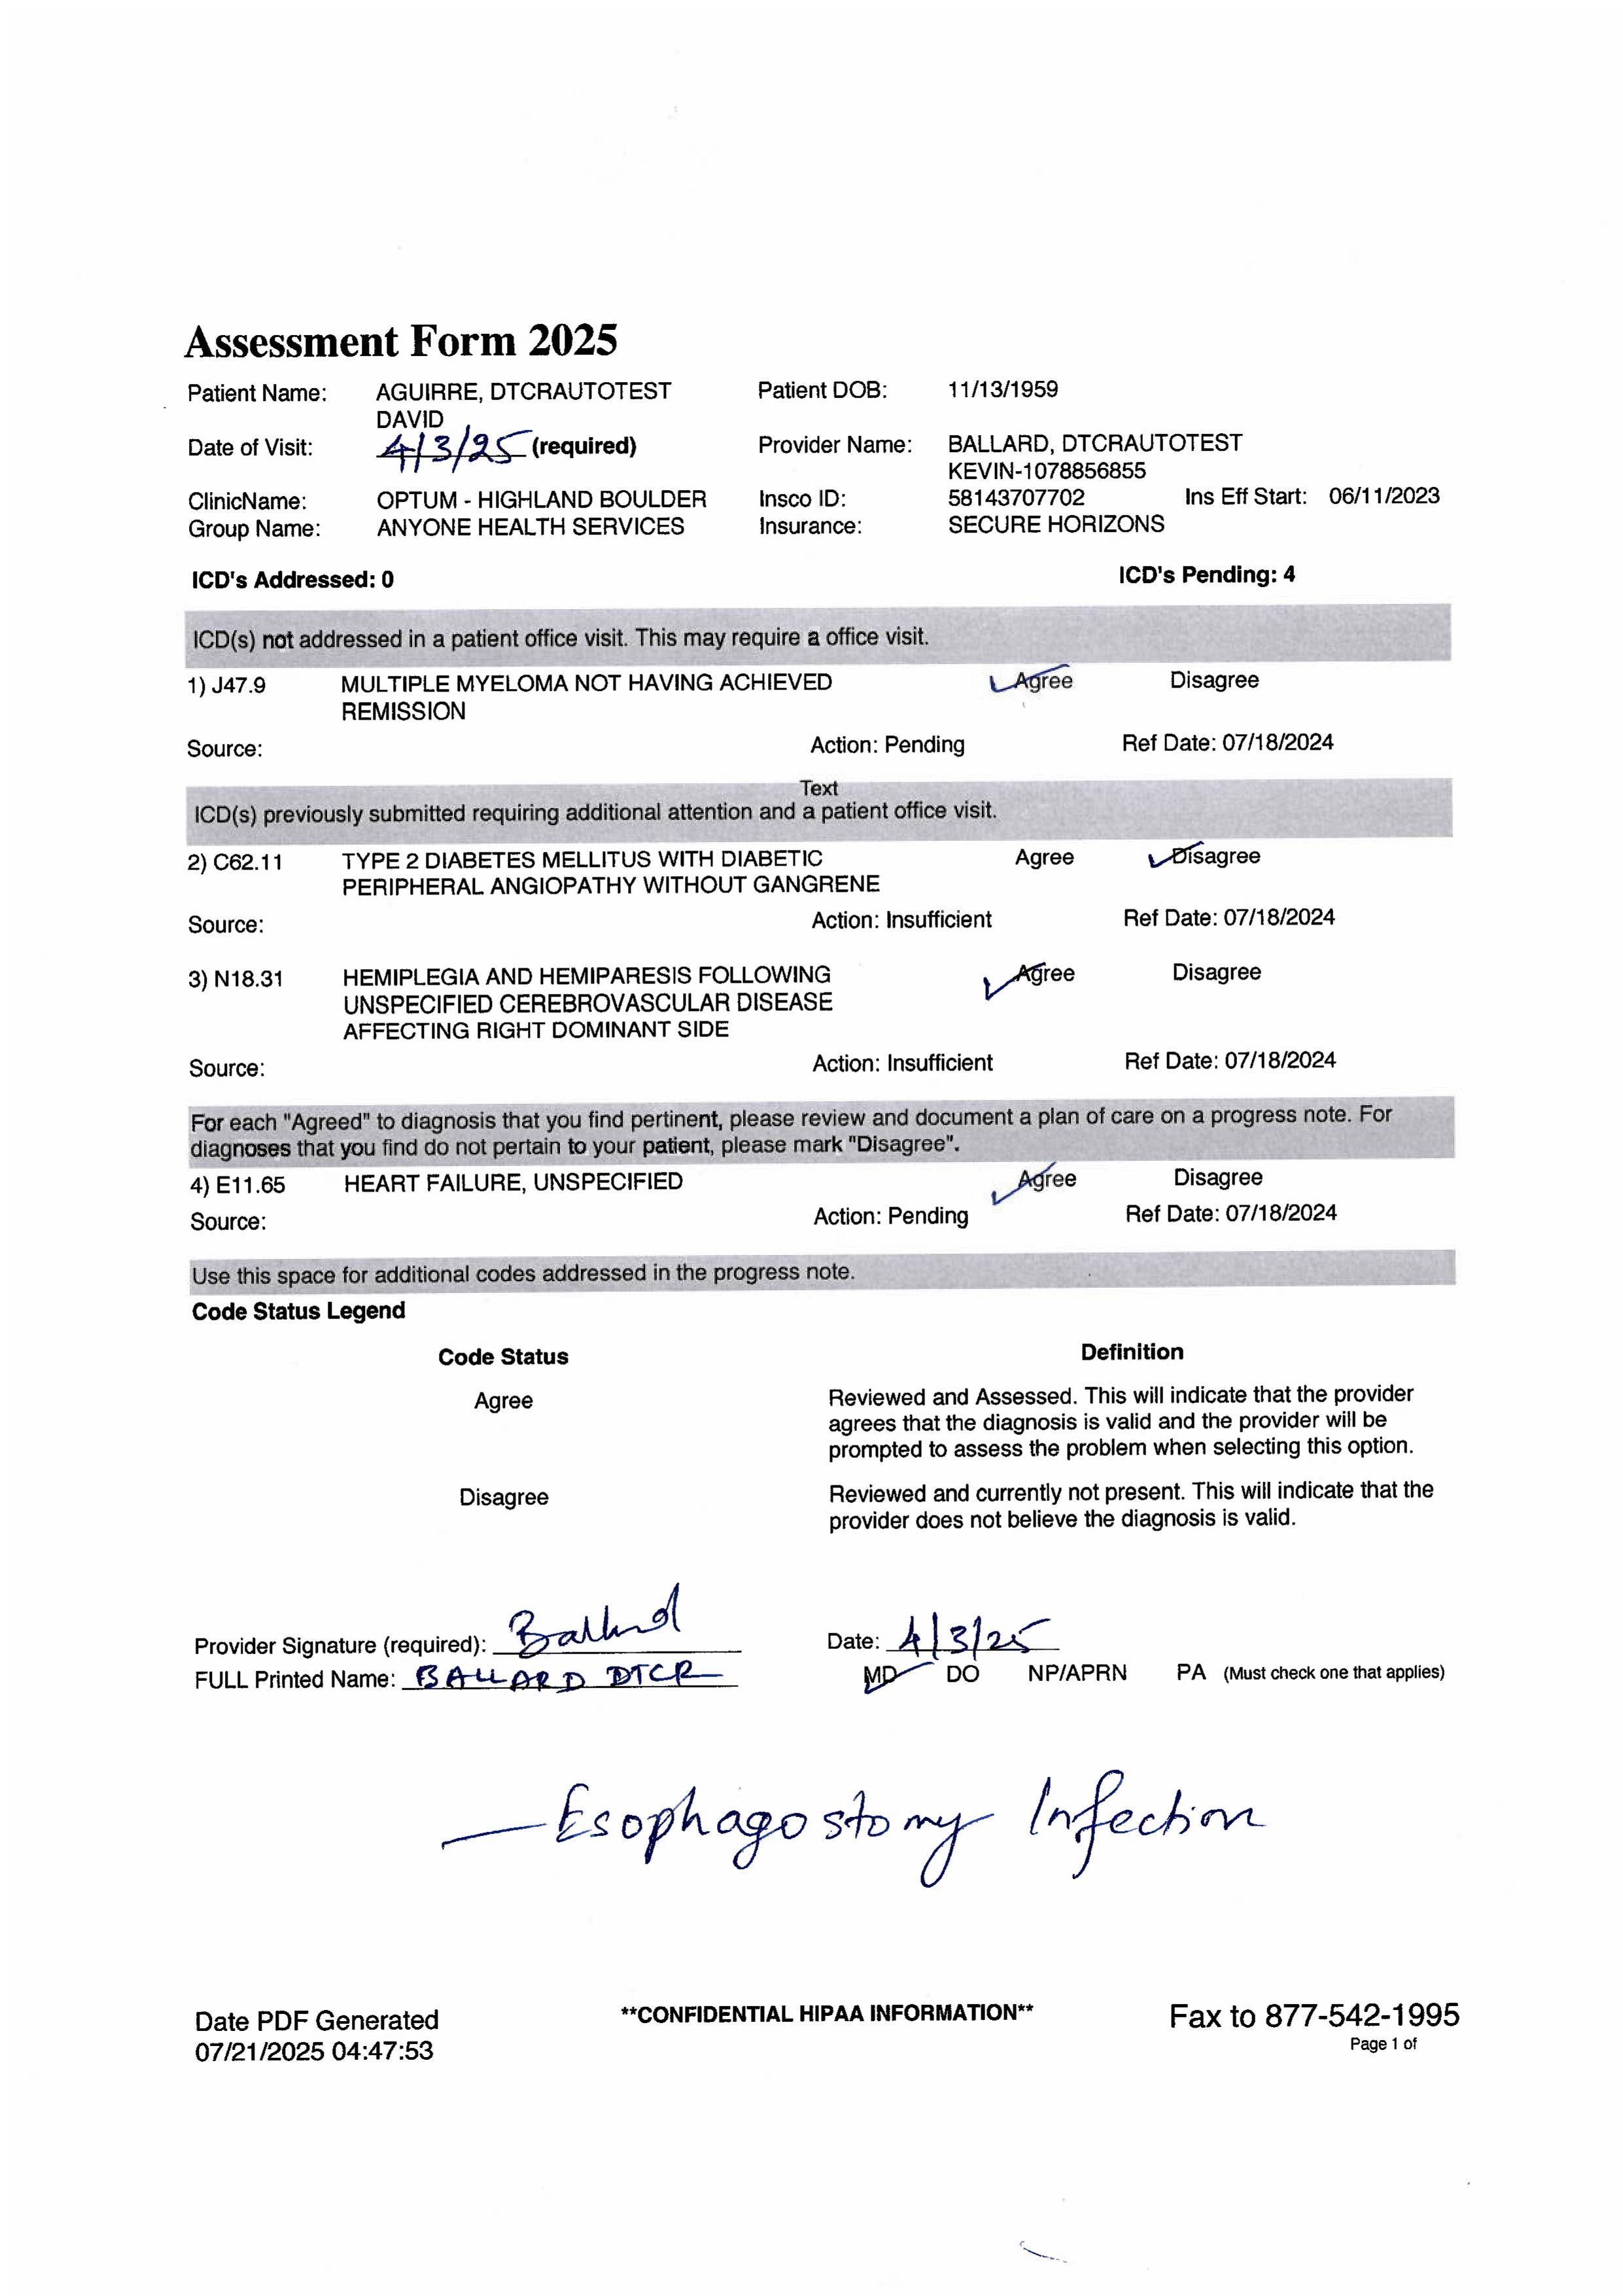 Assessment Form 2025
Patient Name: AGUIRRE, DTCRAUTOTEST DAVID Patient DOB: 11/13/1959
Date of Visit: 4/3/25 (required) Provider Name: BALLARD, DTCRAUTOTEST KEVIN-1078856855
ClinicName: OPTUM - HIGHLAND BOULDER Insco ID: 58143707702 Ins Eff Start: 06/11/2023
Group Name: ANYONE HEALTH SERVICES Insurance: SECURE HORIZONS
ICD's Addressed: 0 ICD's Pending: 4
ICD(s) not addressed in a patient office visit. This may require a office visit.
1) J47.9 MULTIPLE MYELOMA NOT HAVING ACHIEVED Agree Disagree
REMISSION
Source: Action: Pending Ref Date: 07/18/2024
Text
ICD(s) previously submitted requiring additional attention and a patient office visit.
2) C62.11 TYPE 2 DIABETES MELLITUS WITH DIABETIC Agree Disagree
PERIPHERAL ANGIOPATHY WITHOUT GANGRENE
Source: Action: Insufficient Ref Date: 07/18/2024
3) N18.31 HEMIPLEGIA AND HEMIPARESIS FOLLOWING Agree Disagree
UNSPECIFIED CEREBROVASCULAR DISEASE
AFFECTING RIGHT DOMINANT SIDE
Source: Action: Insufficient Ref Date: 07/18/2024
For each "Agreed" to diagnosis that you find pertinent, please review and document a plan of care on a progress note. For
diagnoses that you find do not pertain to your patient, please mark "Disagree".
4) E11.65 HEART FAILURE, UNSPECIFIED Agree Disagree
Source: Action: Pending Ref Date: 07/18/2024
Use this space for additional codes addressed in the progress note.
Code Status Legend
Code Status Definition
Agree Reviewed and Assessed. This will indicate that the provider
agrees that the diagnosis is valid and the provider will be
prompted to assess the problem when selecting this option.
Disagree Reviewed and currently not present. This will indicate that the
provider does not believe the diagnosis is valid.
Provider Signature (required): Ballard Date: 4/3/25
FULL Printed Name: BALLARD DTCR MD DO NP/APRN PA (Must check one that applies)
— Esophagostomy Infection
Date PDF Generated **CONFIDENTIAL HIPAA INFORMATION** Fax to 877-542-1995
07/21/2025 04:47:53 Page 1 of